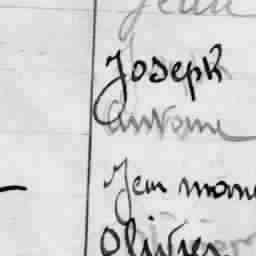 Jean
Joseph
Antoine
Jean marie
Olivier